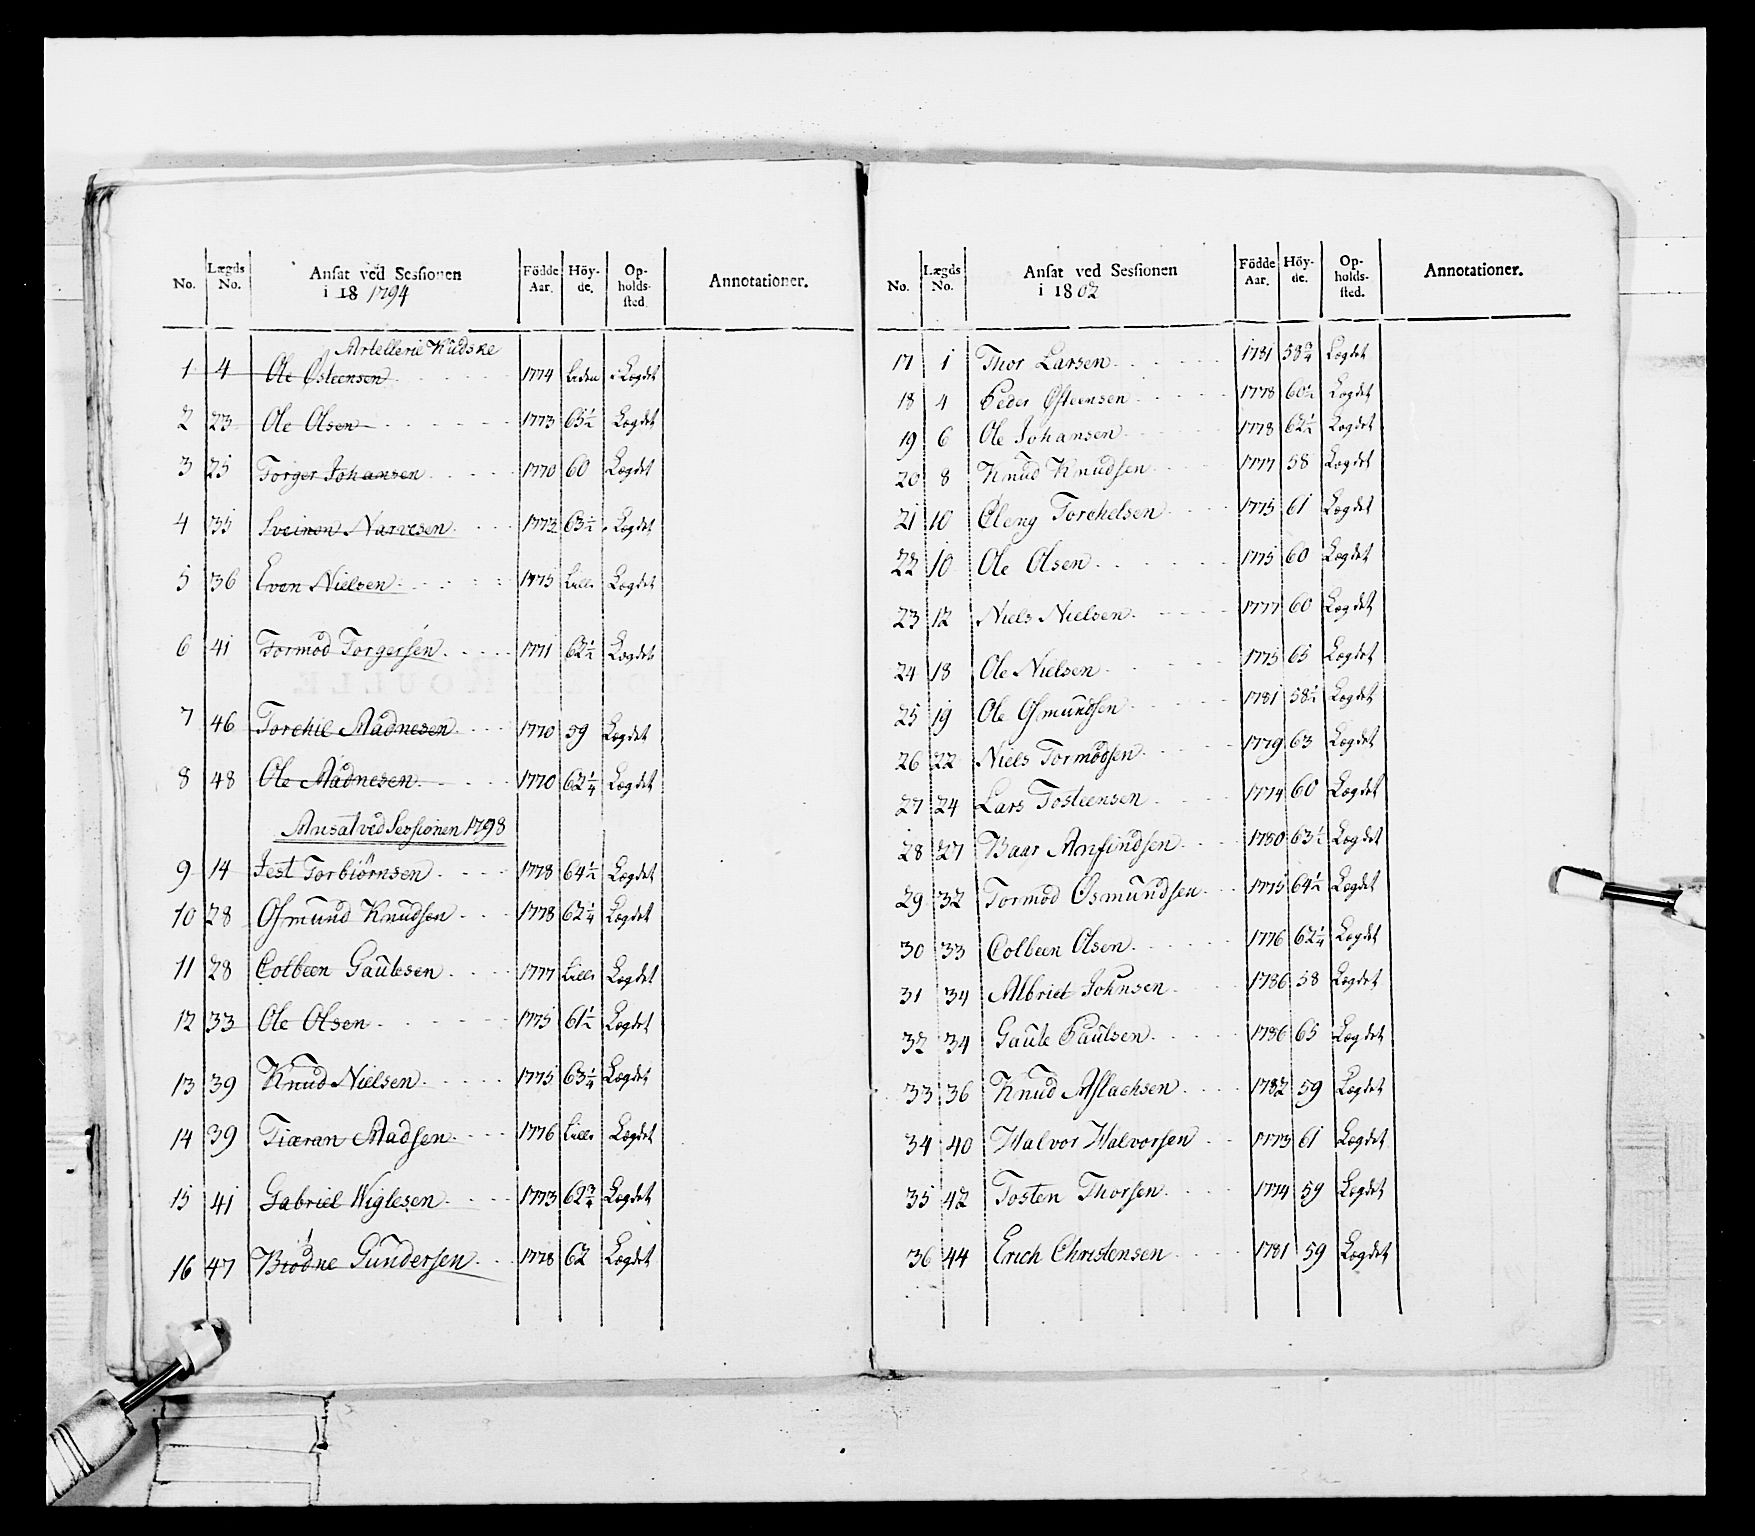 No. Lægds No. Ansat ved Sessionen i 18 1794 Födde Aar. Höy-de. Op-holds-sted. Annotationer.
Artellerie Kudske
1 4 Ole Østeensen 1774 Liden Lægdet
2 23 Ole Olsen 1773 65½ Lægdet
3 25 Torger Johansen 1770 60 Lægdet
4 35 Sveinon Narvesen 1772 63½ Lægdet
5 36 Even Nielsen 1775 Lægdet
6 41 Tormod Torgersen 1771 62½ Lægdet
7 46 Torchil Aadnesen 1770 59 Lægdet
8 48 Ole Aadnesen 1770 62¼ Lægdet
Ansat ved Sessionen 1798
9 14 Jest Torbiørnsen 1778 64½ Lægdet
10 28 Osmund Knudsen 1778 62¼ Lægdet
11 28 Colbeen Gautesen 1777 Lægdet
12 33 Ole Olsen 1775 61½ Lægdet
13 39 Knud Nielsen 1775 63¼ Lægdet
14 39 Tiæran Madsen 1776 Lægdet
15 41 Gabriel Wiglesen 1773 62¾ Lægdet
16 47 Biodne Gundersen 1778 62 Lægdet
No. Lægds No. Ansat ved Sessionen i 1802 Födde Aar. Höy-de. Op-holds-sted. Annotationer.
17 1 Thor Larsen 1781 58¾ Lægdet
18 4 Peder Østeensen 1778 60½ Lægdet
19 6 Ole Johansen 1778 62½ Lægdet
20 8 Knud Knudsen 1777 58 Lægdet
21 10 Eleng Torchelsen 1775 61 Lægdet
22 10 Ole Olsen 1775 60 Lægdet
23 12 Niels Nielsen 1777 60 Lægdet
24 18 Ole Nielsen 1775 65 Lægdet
25 19 Ole Osmundsen 1781 58½ Lægdet
26 22 Niels Tormodsen 1779 63 Lægdet
27 24 Lars Tosteensen 1774 60 Lægdet
28 27 Baar Anfindsen 1780 63½ Lægdet
29 32 Tormod Osmundsen 1775 64½ Lægdet
30 33 Colbeen Olsen 1776 62¼ Lægdet
31 34 Albriet Johnsen 1786 58 Lægdet
32 34 Gaute Paulsen 1786 65 Lægdet
33 36 Knud Aslachsen 1782 59 Lægdet
34 40 Halvor Halvorsen 1773 61 Lægdet
35 42 Tosten Thorsen 1774 59 Lægdet
36 44 Erich Christensen 1781 59 Lægdet